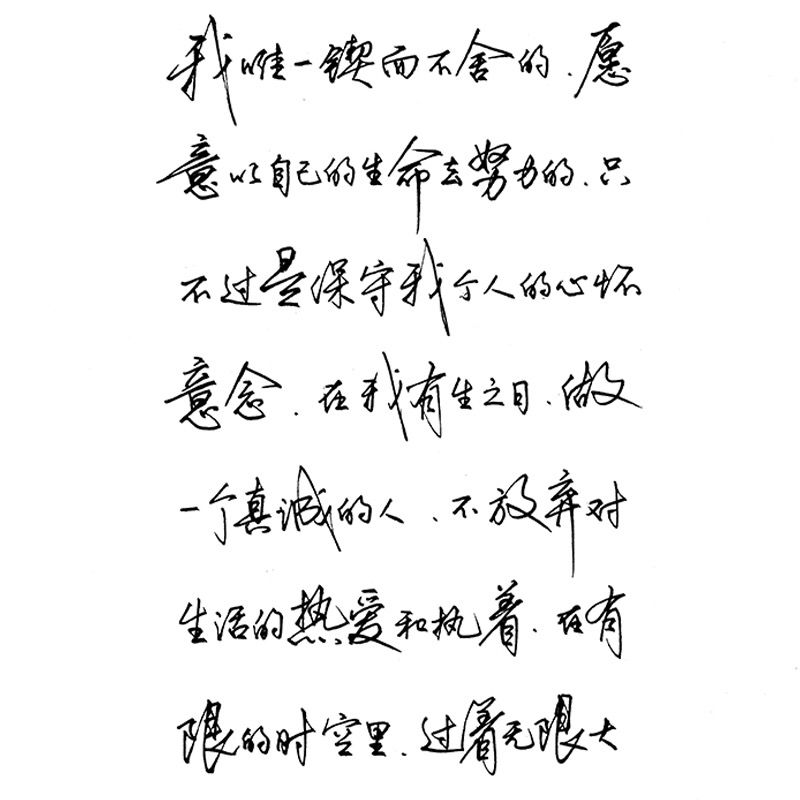 我唯一锲而不舍的、愿
意以自己的生命去努力的、只
不过是保守我个人的心怀
意念、在我有生之日、做
一个真诚的人、不放弃对
生活的热爱和执着、在有
限的时空里、过着无限大